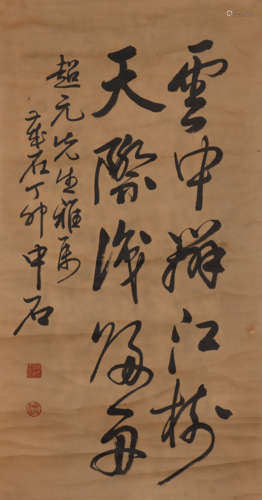 雲中辨江樹
天際識歸舟
超元先生雅屬
歲在丁卯中石